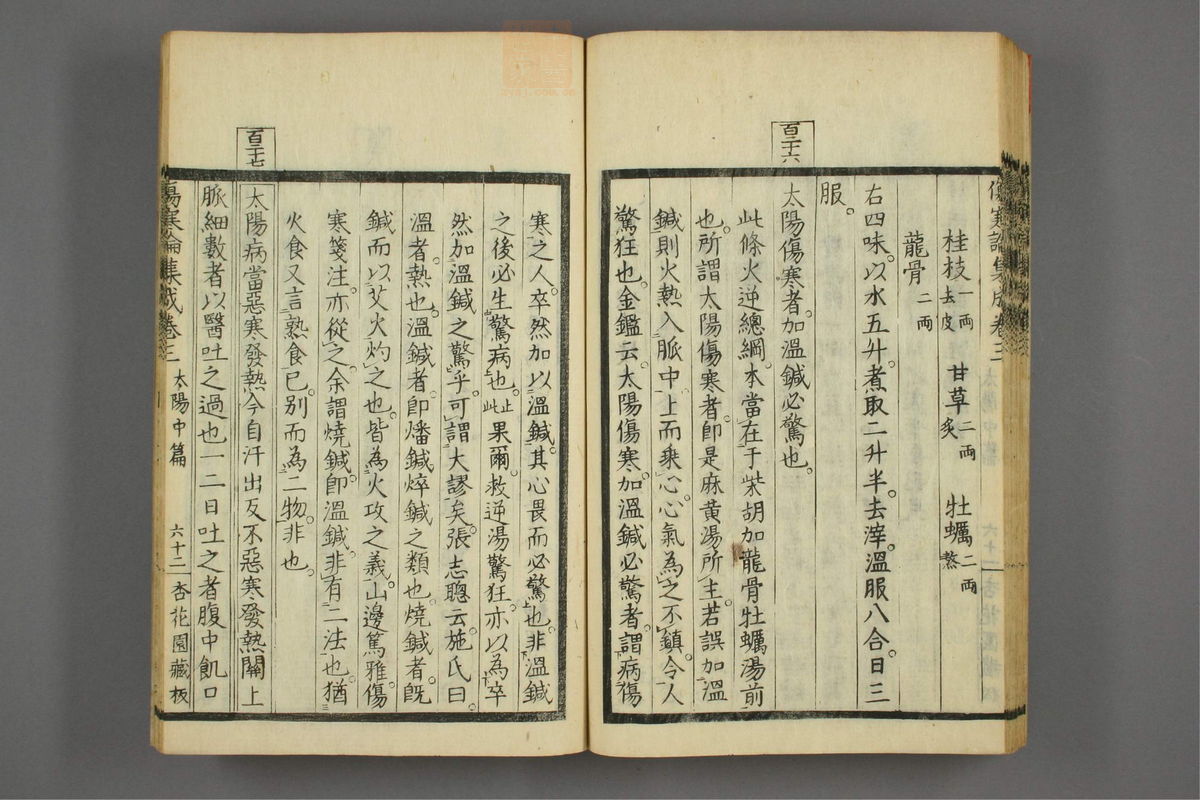 傷寒論集成卷三 太陽中篇 六十一 杏花園藏板
桂枝 一両去皮 甘草 二両炙 牡蠣 二両熬
龍骨 二両
右四味。以水五升。煮取二升半。去滓。溫服八合日三
服。
百三十六
太陽傷寒者。加溫鍼必驚也。
此條火逆總綱。本當在于柴胡加龍骨牡蠣湯前
也。所謂太陽傷寒者。卽是麻黃湯所主。若誤加溫
鍼。則火熱入脈中。上而乘心。心氣為之不鎮。令人
驚狂也。金鑑云。太陽傷寒。加溫鍼必驚者。謂病傷
寒之人。卒然加以溫鍼。其心畏而必驚也。非溫鍼
之後必生驚病也。止此果爾。救逆湯驚狂。亦以為卒
然加溫鍼之驚乎。可謂大謬矣。張志聰云。施氏曰。
溫者。熱也。溫鍼者。卽燔鍼焠鍼之類也。燒鍼者。旣
鍼而以艾火灼之也。皆為火攻之義。山邊篤雅傷
寒箋注。亦從之。余謂燒鍼。卽溫鍼。非有二法也。猶
火食又言熟食已。別而為二物。非也。
百三十七
太陽病當惡寒發熱今自汗出反不惡寒發熱關上
脈細數者以醫吐之過也一二日吐之者腹中飢口
傷寒論集成卷三 太陽中篇 六十二 杏花園藏板